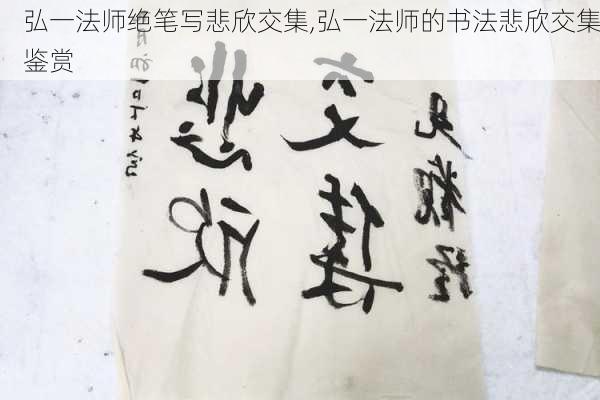 弘一法师绝笔写悲欣交集,弘一法师的书法悲欣交集
鉴赏
悲欣
交集
見觀經